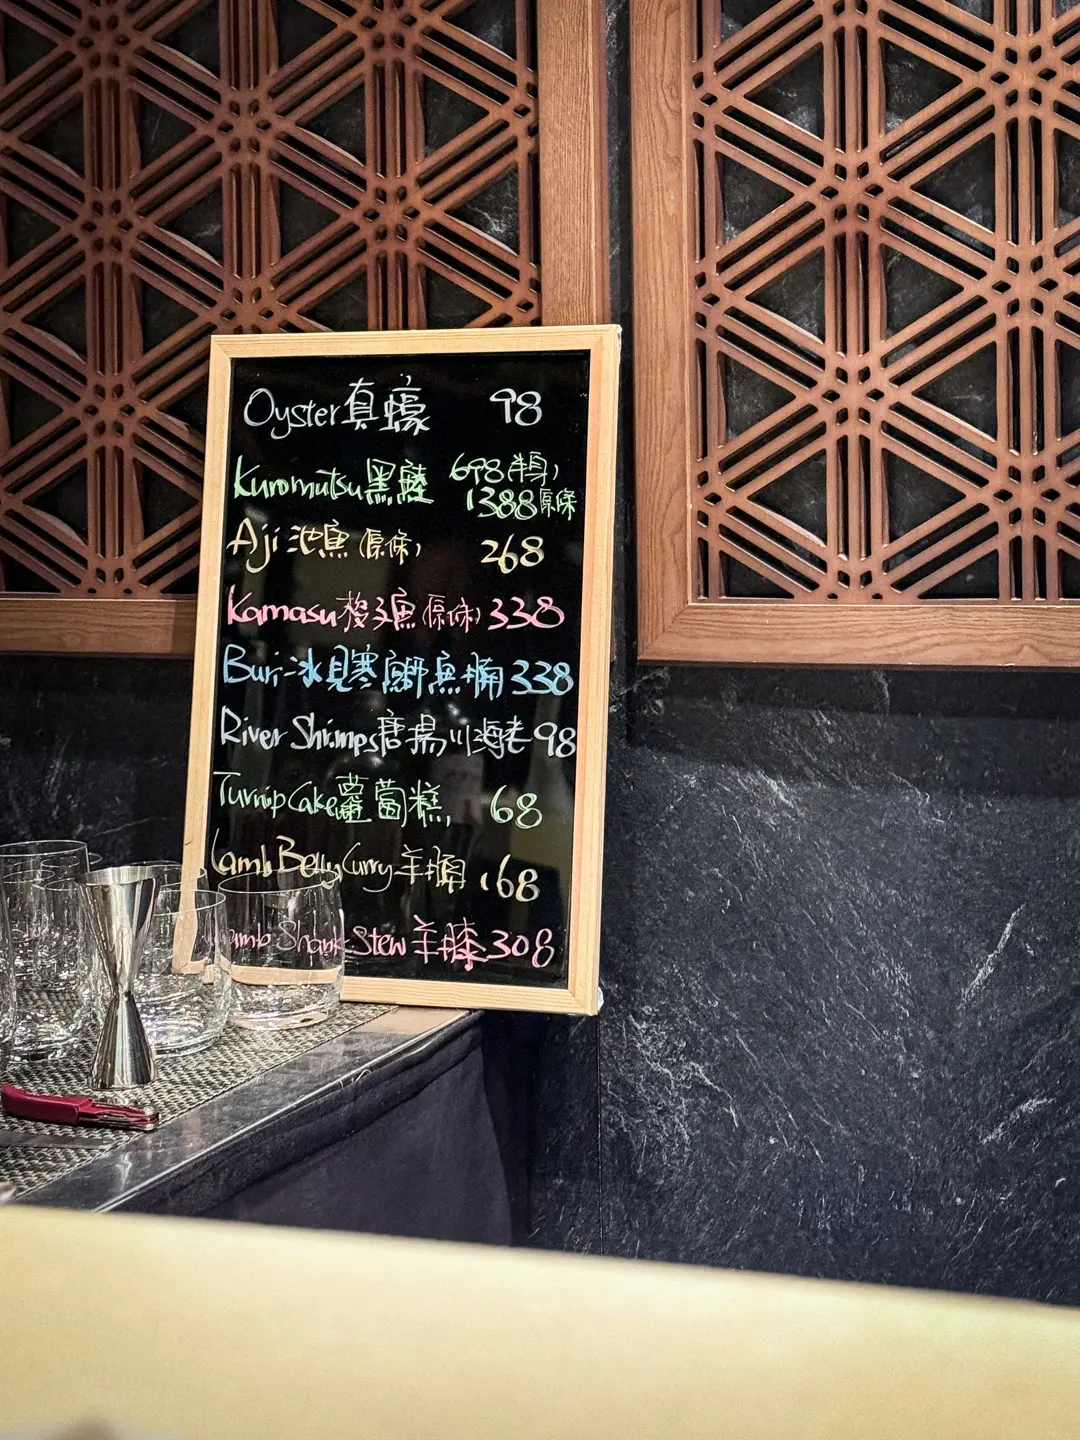 Oyster 真蠔 98
Kuromutsu 黑鯥 698(半身)
1388原條
Aji 池魚(原條) 268
Kamasu 梭子魚(原條) 338
Buri 冰見寒鰤魚腩 338
River Shrimps 唐揚川海老 98
Turnip Cake 蘿蔔糕 68
Lamb Belly Curry 羊腩 168
Lamb Shank Stew 羊膝 308